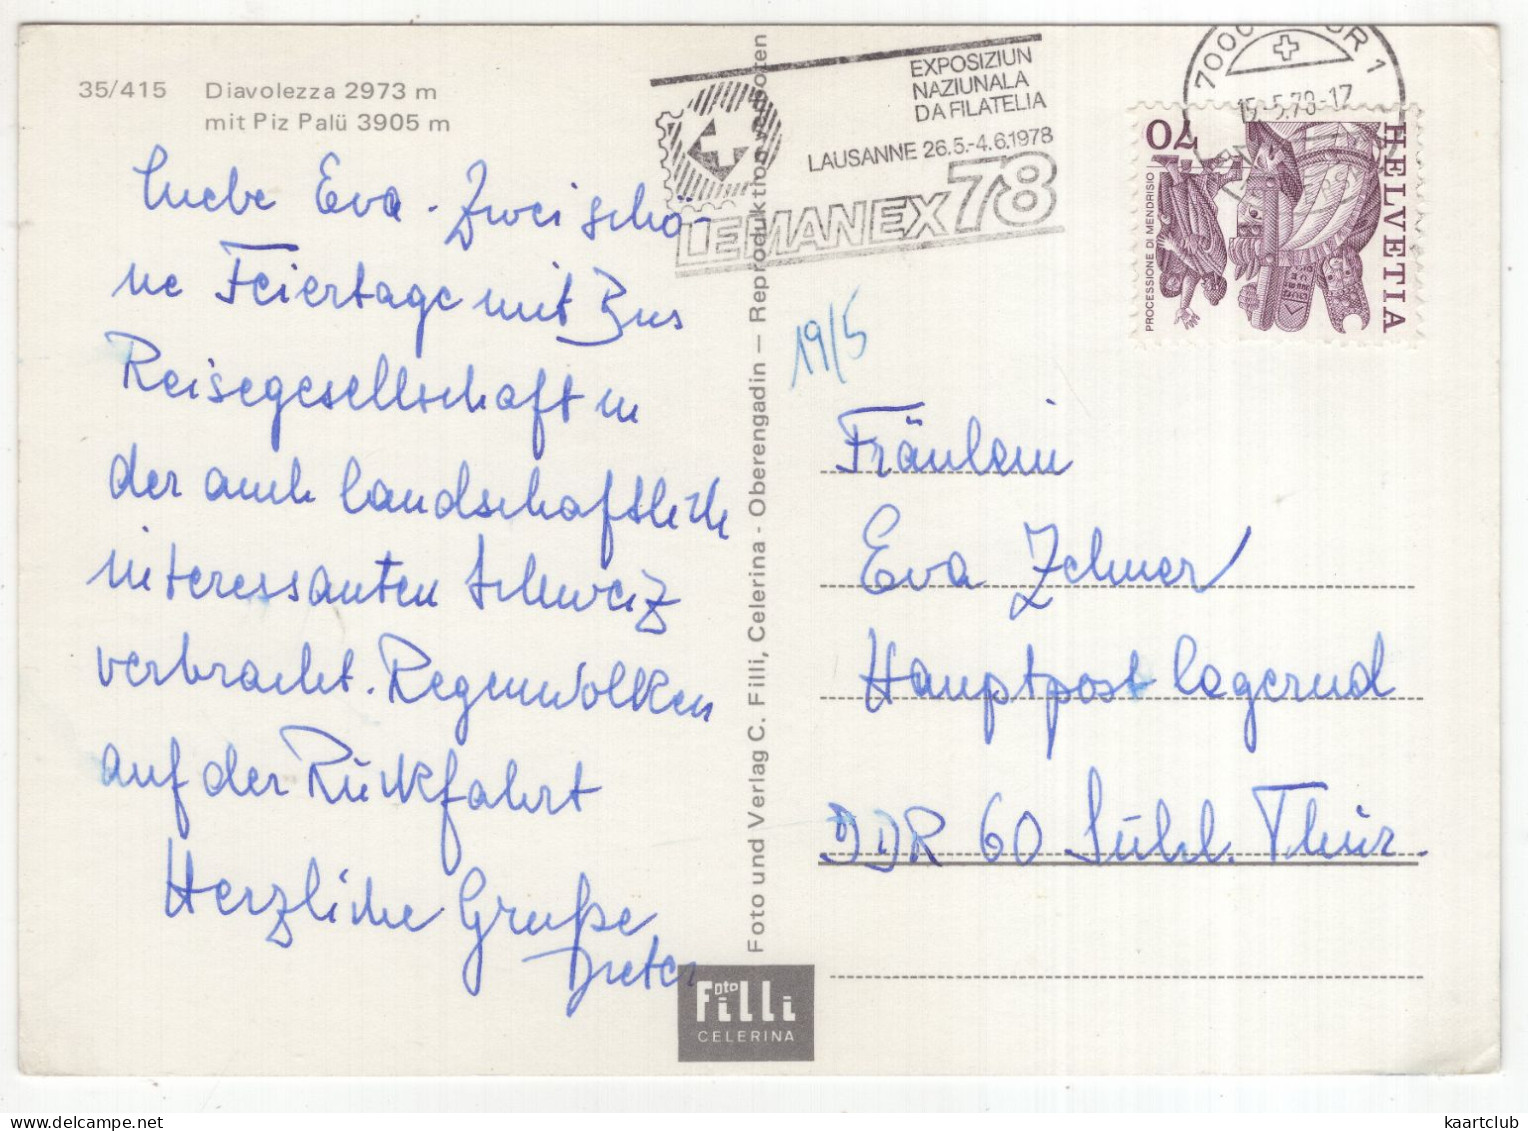 35/415 Diavolezza 2973 m
mit Piz Palü 3905 m
Liebe Eva. Zwei schö-
ne Feiertage mit Bus
Reisegesellschaft in
der auch landschaftlich
interessanten Schweiz
verbracht. Regenwolken
auf der Rückfahrt
Herzliche Grüße
Dieter
Foto und Verlag C. Filli, Celerina - Oberengadin — Reproduktion verboten
Foto Filli
CELERINA
EXPOSIZIUN
NAZIUNALA
DA FILATELIA
LAUSANNE 26.5.-4.6.1978
LEMANEX 78
7000 CHUR 1
15.-5.78-17
HELVETIA
70
PROCESSIONE DI MENDRISIO
19/5
Fräulein
Eva
Hauptpost lagernd
DDR 60 Suhl. Thür.
kaartclub